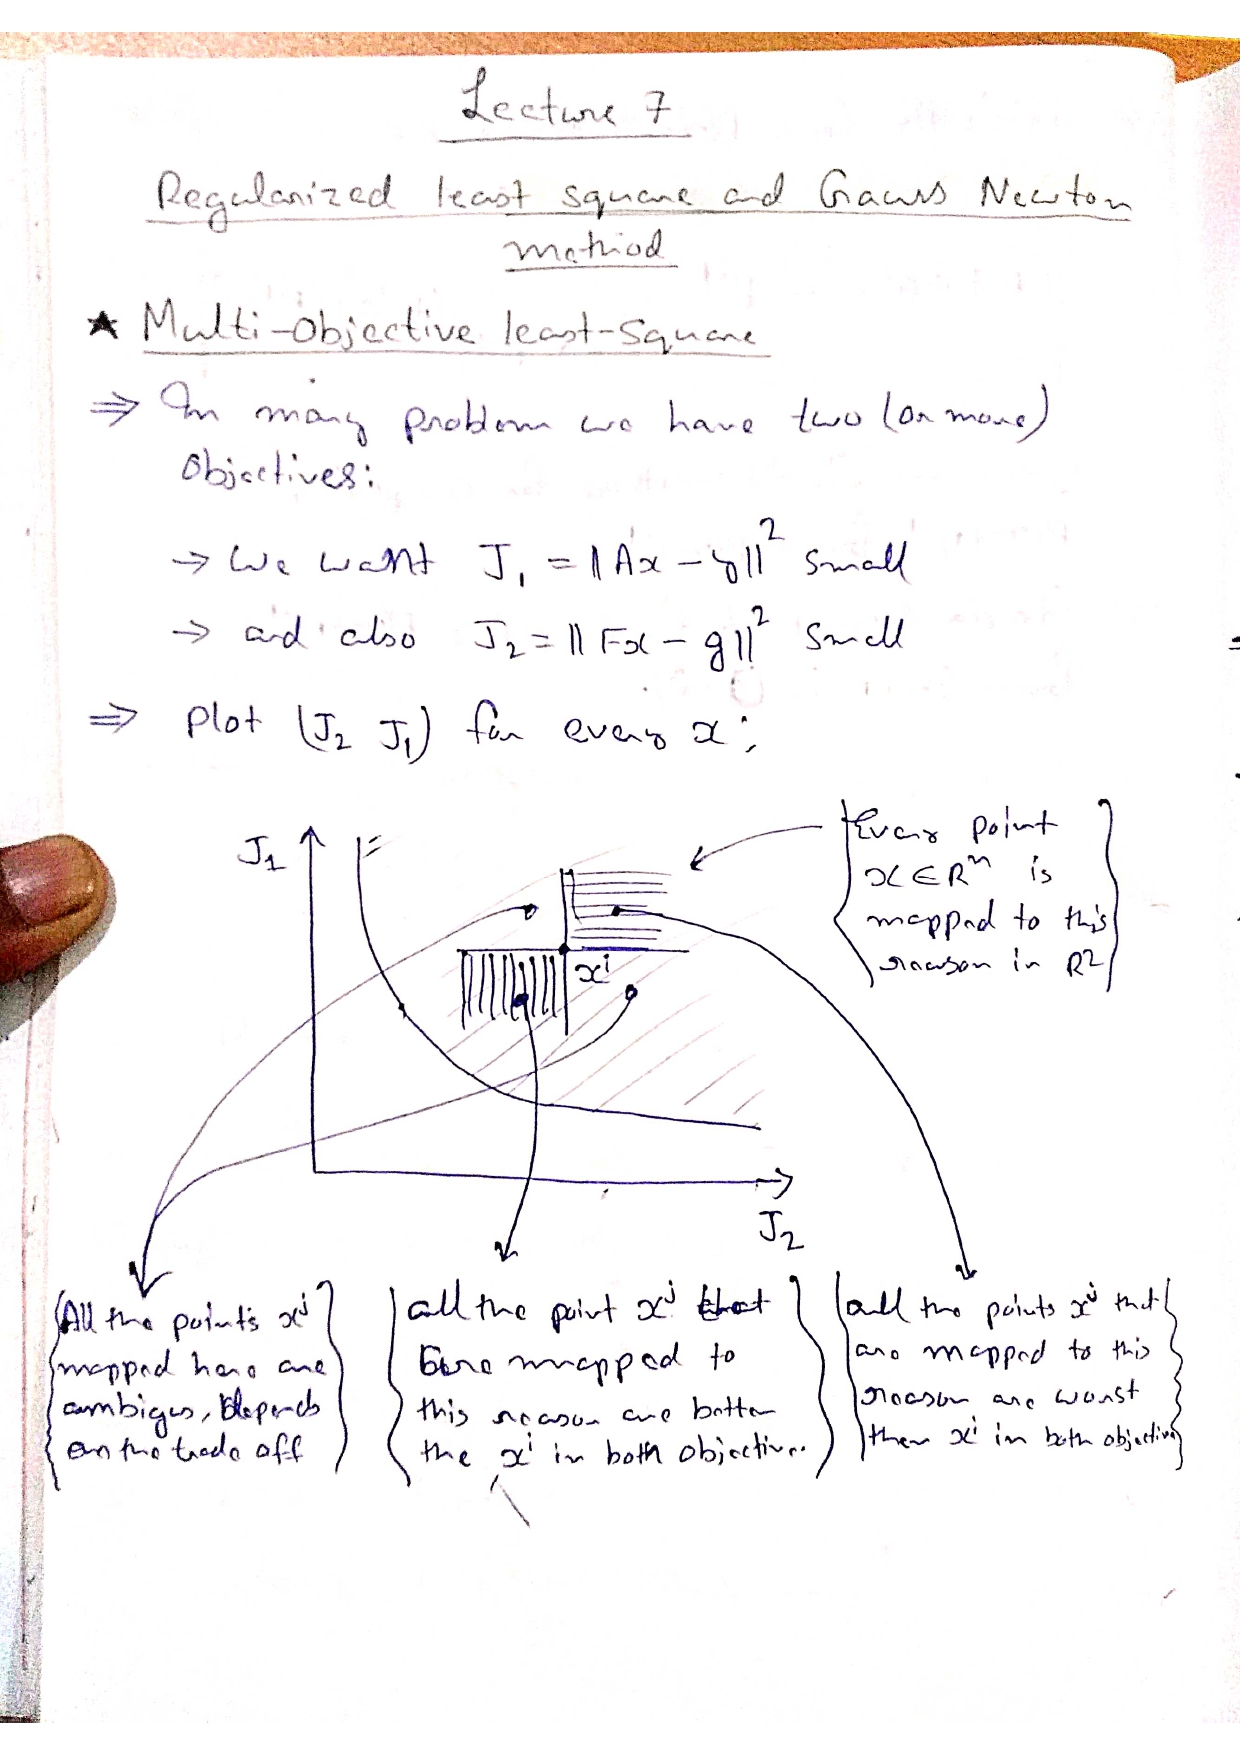 Lecture 7
Regularized least square and Gauss Newton
method
★ Multi-Objective least-Square
⇒ In many problem we have two (or more)
Objectives:
→ We want J₁ = ||Ax - y||² small
→ and also J₂ = ||Fx - g||² small
⇒ Plot (J₂ J₁) for every x;
J₁
Every point
x ∈ Rⁿ is
mapped to this
reason in R²
xⁱ
J₂
All the points xʲ
mapped here are
ambigus, depends
on the trade off
all the point xʲ that
are mapped to
this reason are better
the xⁱ in both objective.
all the points xʲ that
are mapped to this
reason are worst
then xⁱ in both objective